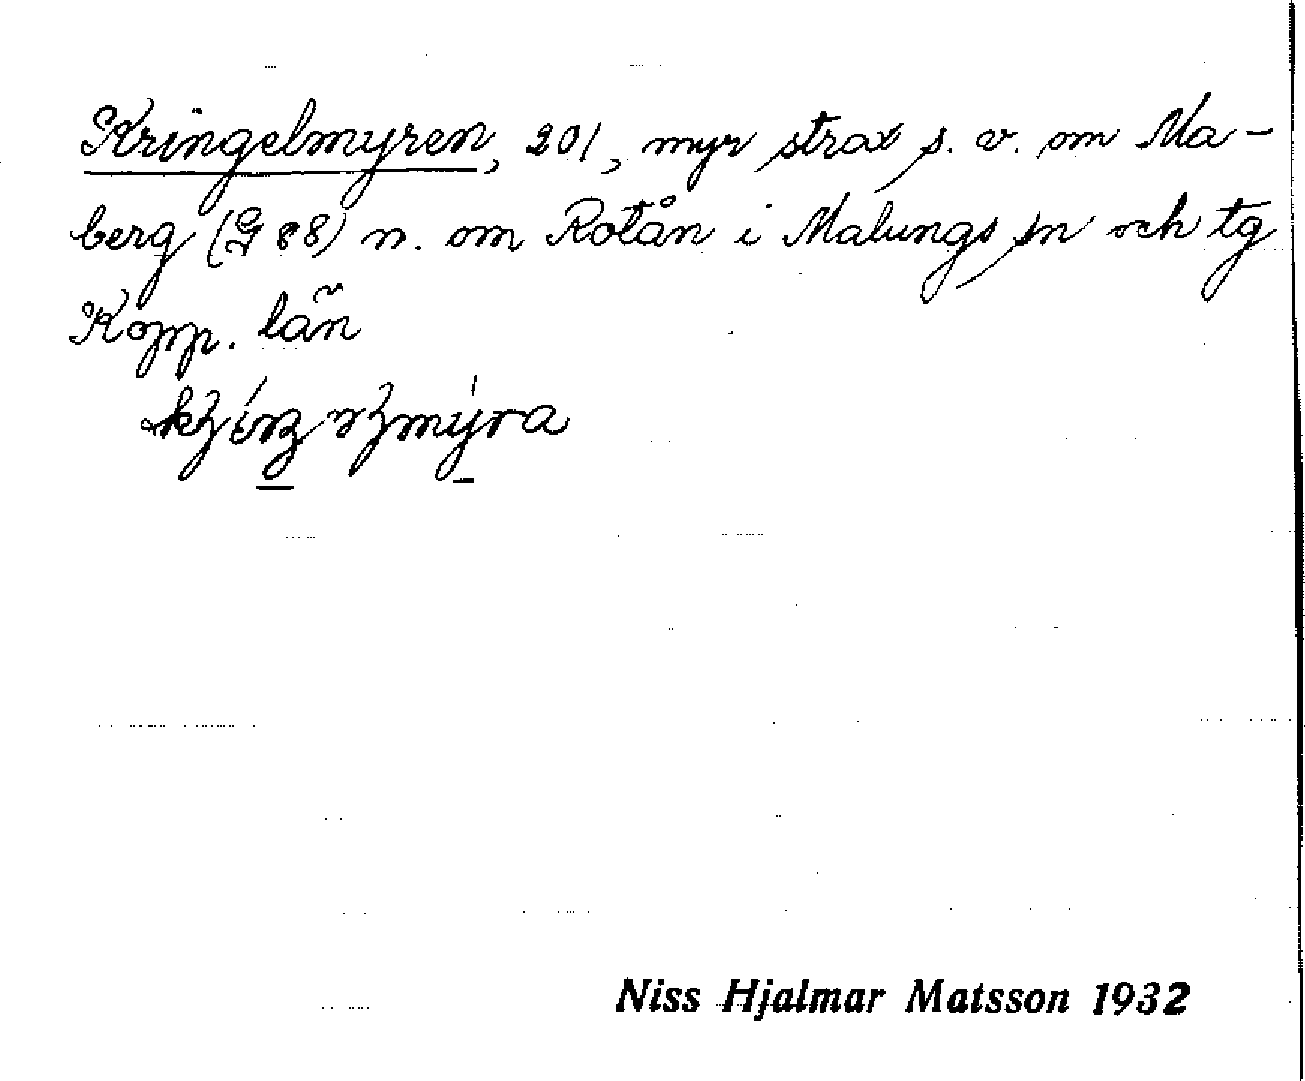 Kringelmyren, 201, myr strax s. v. om Ma-
berg (G 88) n. om Rotån i Malungs sn och tg
Kopp. län
Niss Hjalmar Matsson 1932